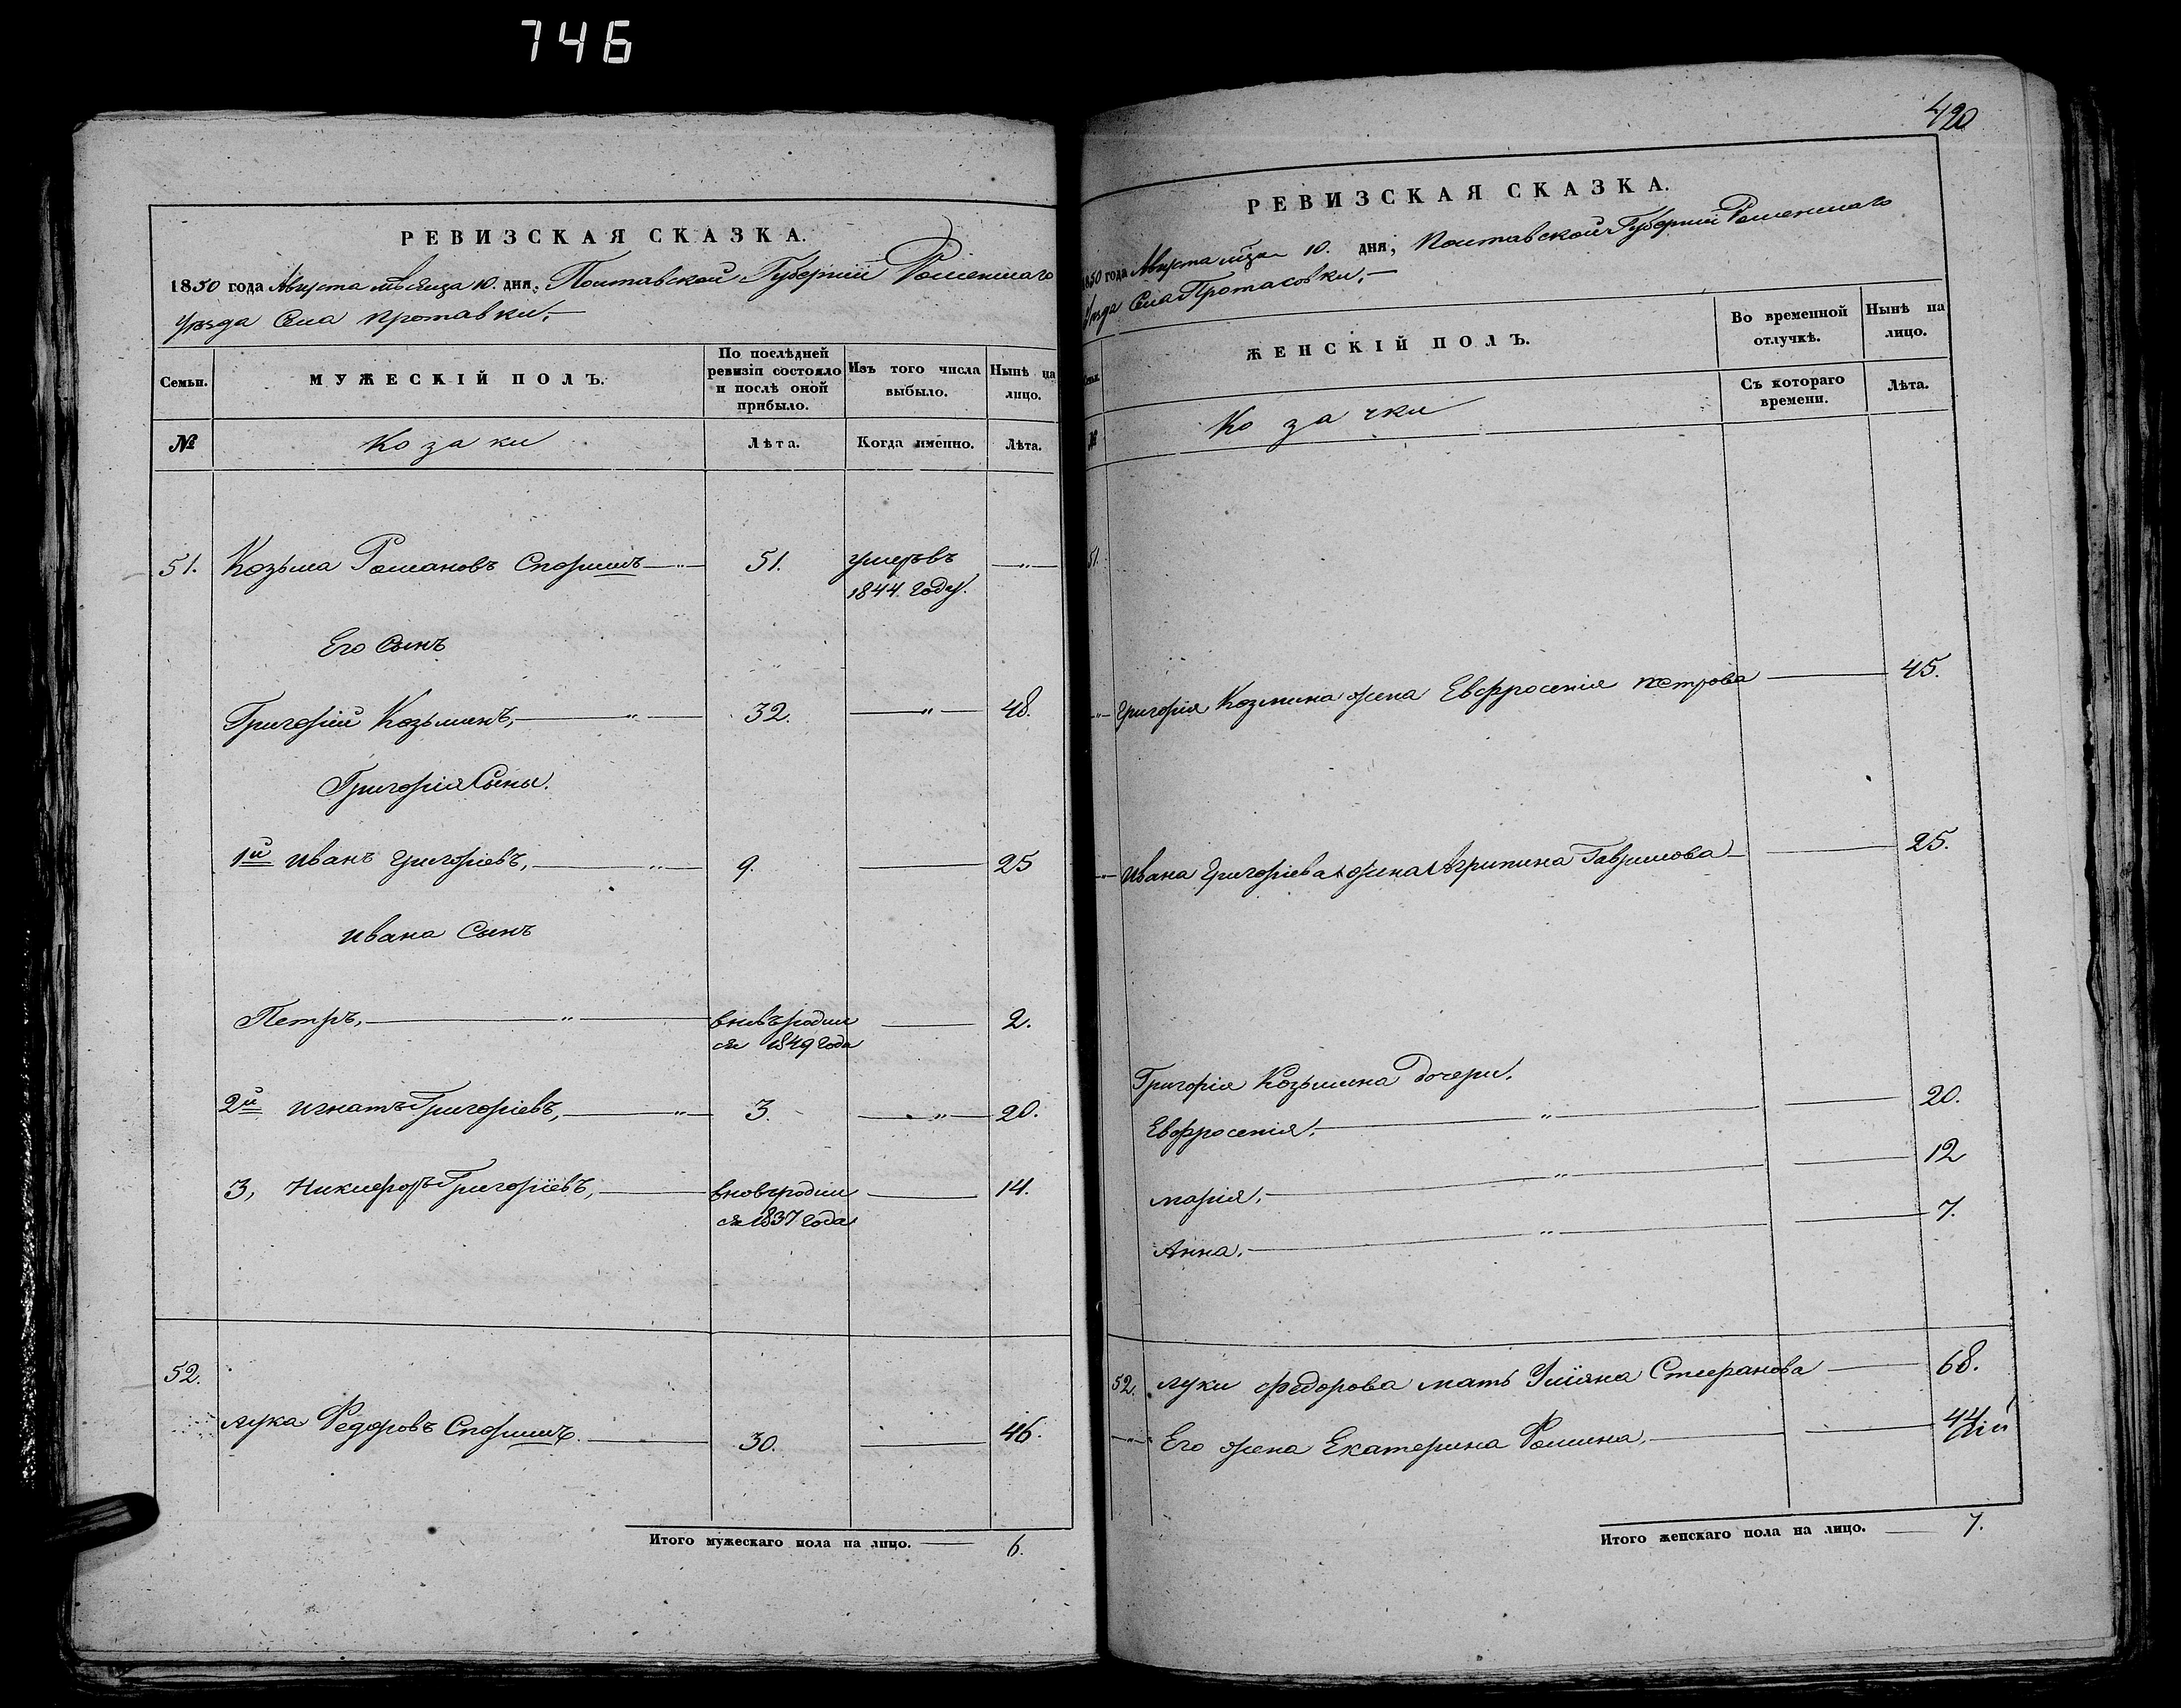 746
РЕВИЗСКАЯ СКАЗКА.
1850 года Августа мѣсяца 10. дня, Полтавской Губерніи Роменскаго
Уѣзда Села Протавки.
Семьи.
МУЖЕСКІЙ ПОЛЪ.
По послѣдней ревизіи состояло и послѣ оной прибыло.
Изъ того числа выбыло.
Нынѣ на лицо.
№
Козаки
Лѣта.
Когда именно.
Лѣта.
51. Козьма Романовъ Споришъ 51. умеръ въ „
1844 году.
Его Сынъ
Григорій Козьминъ, „ 32. „ 48.
Григорія Сыны.
1й Иванъ Григоріевъ, „ 9. 25
Ивана Сынъ
Петръ, „ вновь роди 2.
ся 1849 года
2й Игнатъ Григоріевъ, „ 3. „ 20.
3, Никифоръ Григоріевъ, вновь роди 14.
ся 1837 года
52.
Лука Федоровъ Споришъ. 30. 46.
Итого мужескаго пола на лицо. 6.
420
РЕВИЗСКАЯ СКАЗКА.
1850 года Августа мца 10. дня, Полтавской Губерніи Роменскаго
Уѣзда Села Протасовки.
Семьи.
ЖЕНСКІЙ ПОЛЪ.
Во временной отлучкѣ.
Нынѣ на лицо.
№
Козачки
Съ котораго времени.
Лѣта.
51.
„ Григорія Козмина жена Евфросенія Петрова 45.
„ Ивана Григоріева жена Агрипина Гаврилова 25.
Григорія Козьмина дочери.
Евфросенія, „ 20.
Марія, „ 12
Анна. „ 7.
52. Луки Федорова мать Уліяна Стефанова 68.
„ Его жена Екатерина Фомина, 44
Итого женскаго пола на лицо. 7.